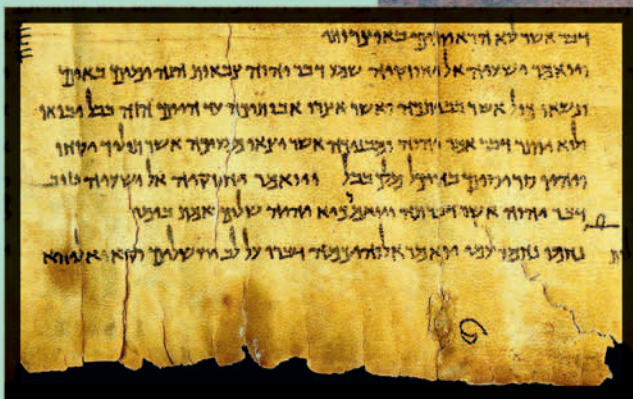 דבר אשר לא הראיתים באוצרותי
ויואמר ישעיה אל יחוזקיה שמע דבר יהוה צבאות הנה ימים באים
ונשאו כול אשר בביתכה ואשר אצרו אבותיכה עד היום הזה בבל יבואו
ולוא יותר דבר אמר יהוה ומבניכה אשר יצאו ממעיכה אשר תוליד יקחו
ויהיו סריסים בהיכל מלך בבל ויואמר יחזקיה אל ישעיה טוב
דבר יהוה אשר דברתה ויואמר כיא יהיה שלום אמת בימי
נחמו נחמו עמי יואמר אלוהיכמה דברו על לב ירושלים וקראו אליהא